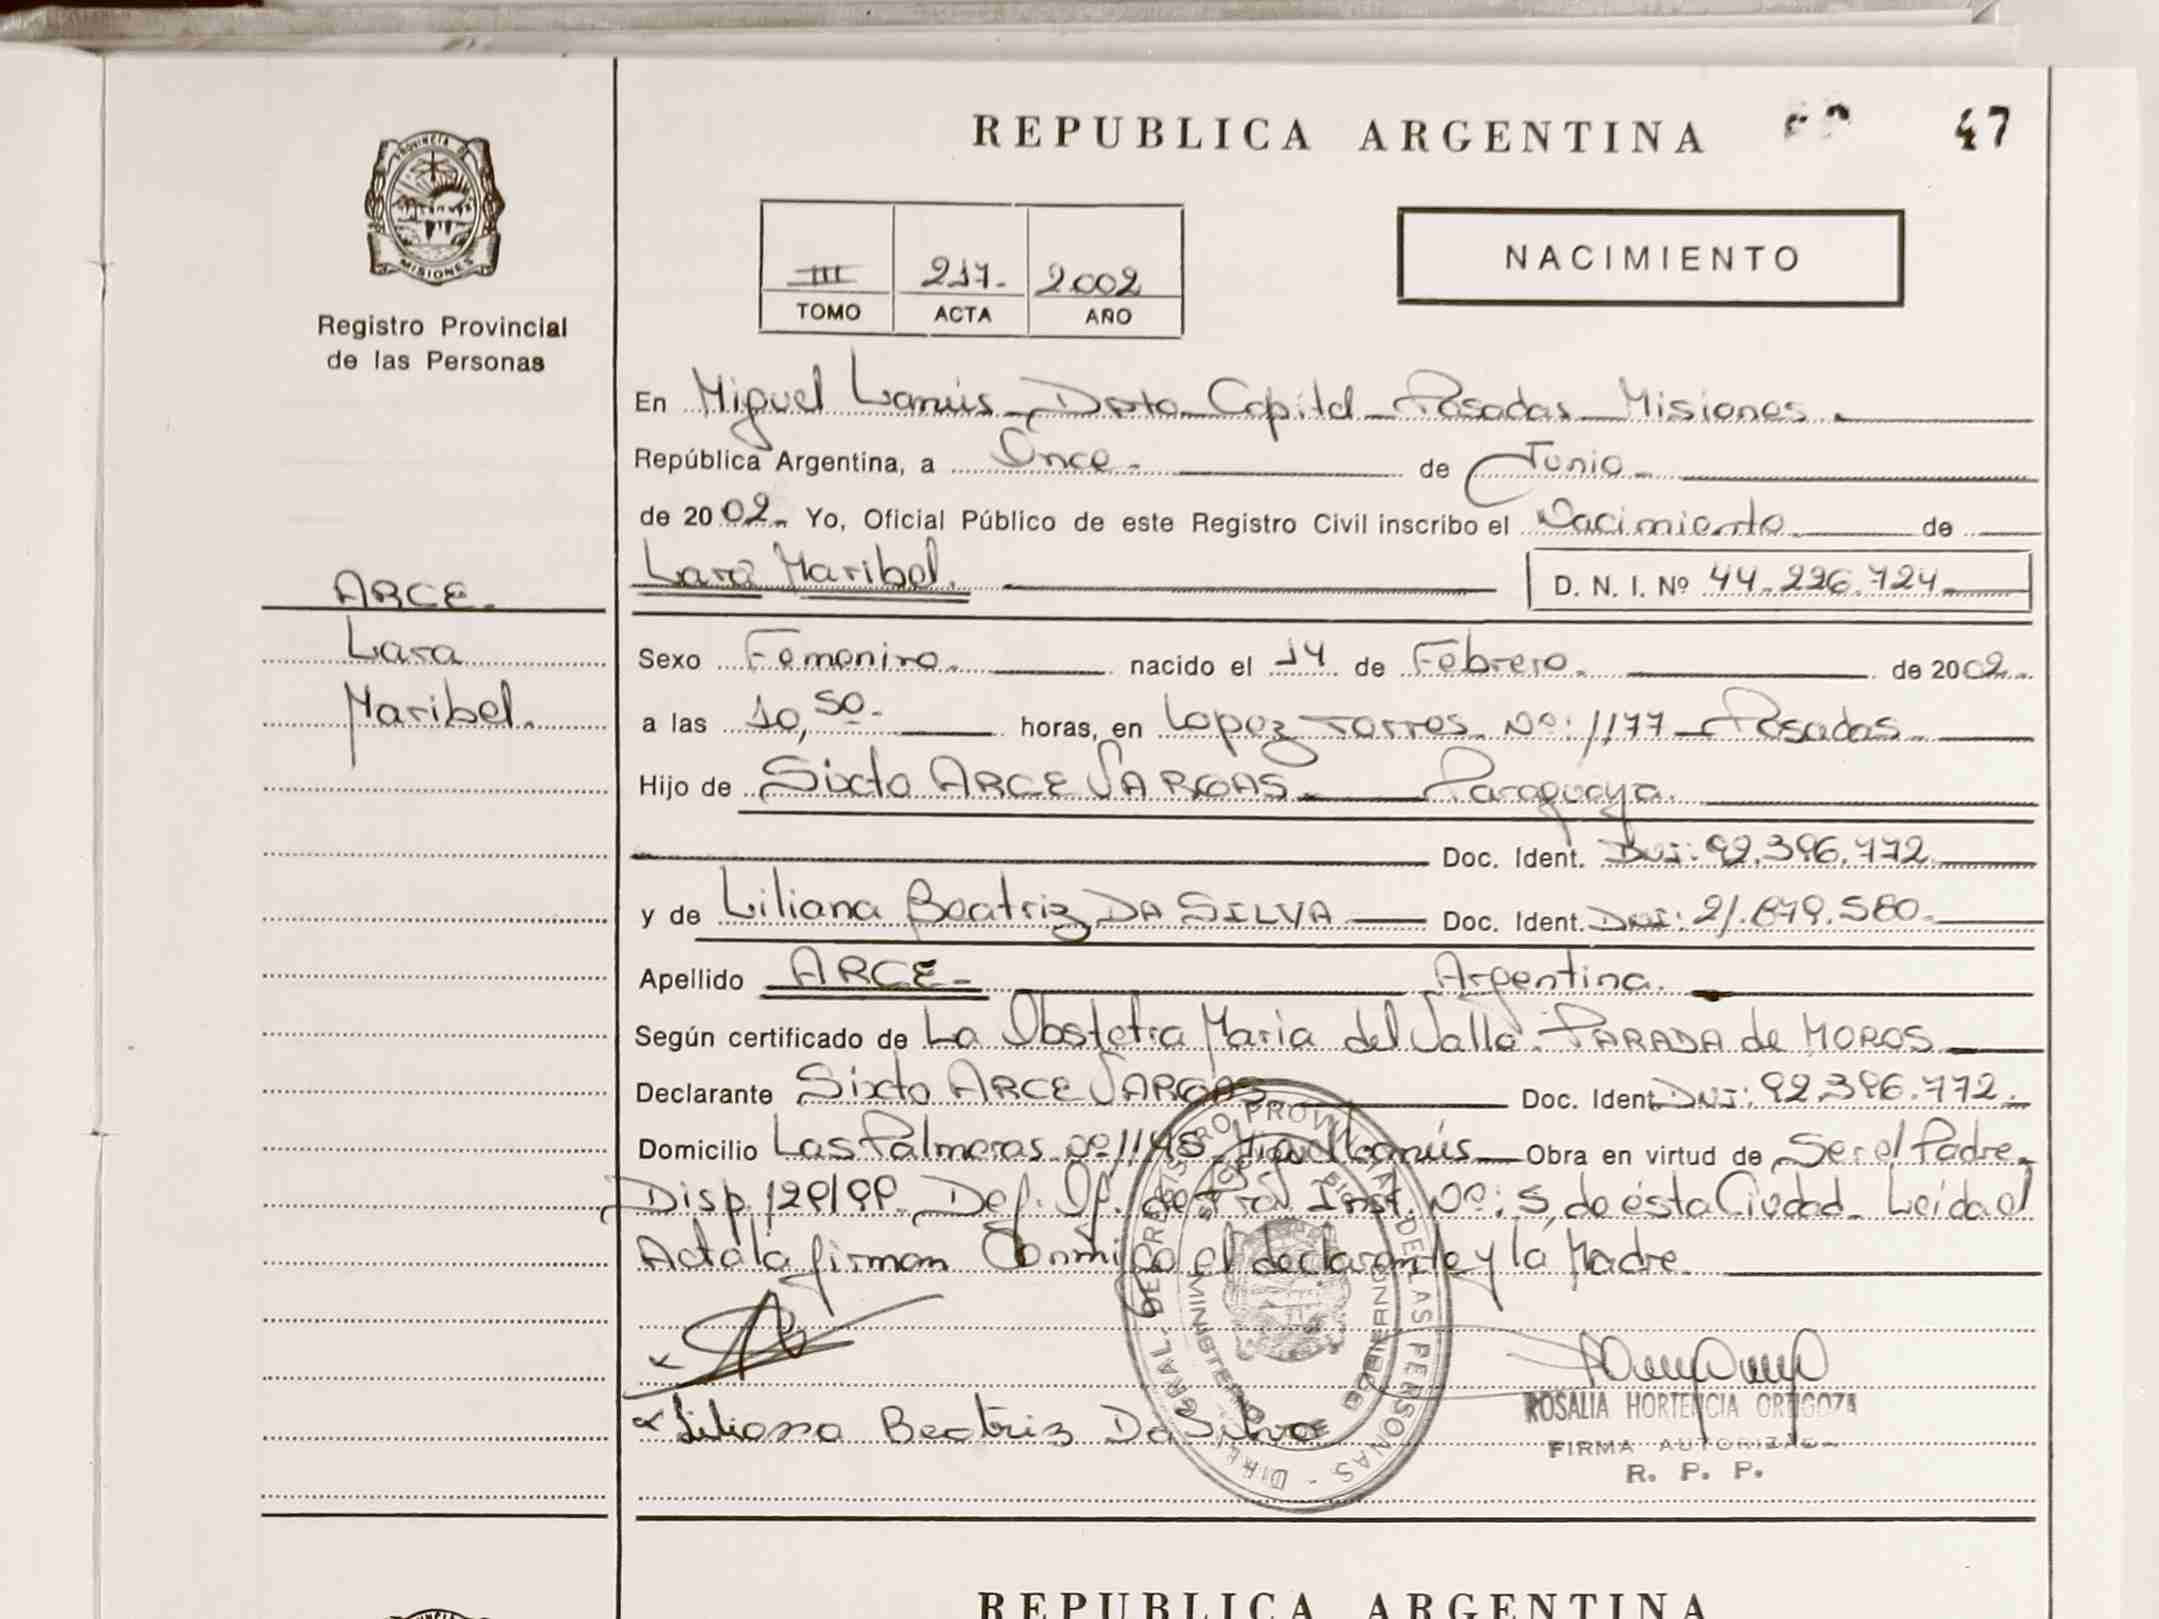 REPUBLICA ARGENTINA 47
PROVINCIA DE MISIONES
Registro Provincial
de las Personas
III 217. 2002
TOMO ACTA AÑO
NACIMIENTO
En Miguel Lanús - Dpto Capital - Posadas - Misiones.
República Argentina, a Once - de Junio -
de 2002. Yo, Oficial Público de este Registro Civil inscribo el Nacimiento de
Lara Maribel. D. N. I. Nº 44.226.724
ARCE.
Lara
Maribel.
Sexo Femenino. nacido el 14 de Febrero. de 2002.
a las 10,50. horas, en Lopez Torres Nº: 1177 - Posadas.
Hijo de Sixto ARCE VARGAS. Paraguaya.
Doc. Ident. DNI: 92.396.772
y de Liliana Beatriz DA SILVA Doc. Ident. DNI: 21.679.580.
Apellido ARCE - Argentina.
Según certificado de La Obstetra Maria del Valle PARADA de MOROS
Declarante Sixto ARCE VARGAS Doc. Ident. DNI: 92.396.772.
Domicilio Las Palmeras nº 1145 Miguel Lanús - Obra en virtud de Ser el Padre.
Disp. 129/99. Def. Of. de 1ra Inst. Nº: 5, de ésta Ciudad - Leida el
Acta la firman Conmigo el declarante y la Madre.
Liliana Beatriz Da Silva
ROSALIA HORTENCIA ORTIGOZA
FIRMA AUTORIZADA
R. P. P.
REPUBLICA ARGENTINA